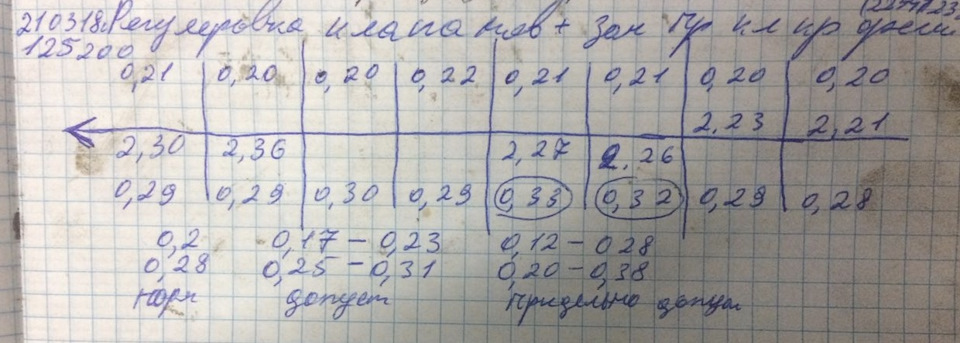 210318г Регулировка клапанов + Зам Пр кл кр
125200
0,21 0,20 0,20 0,22 0,21 0,21 0,20 0,20
2,23 2,21
2,30 2,36 2,27 2,26
0,29 0,29 0,30 0,29 0,33 0,32 0,29 0,28
0,2 0,17 - 0,23 0,12 - 0,28
0,28 0,25 - 0,31 0,20 - 0,38
норм допуст придельно допуш